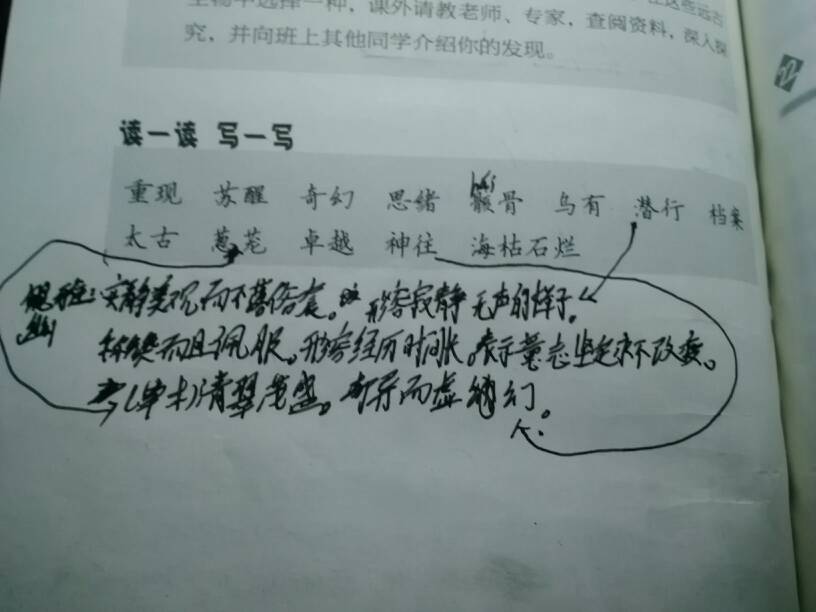 生物中选择一种，课外请教老师、专家，查阅资料，深入探
究，并向班上其他同学介绍你的发现。
读一读 写一写
重现 苏醒 奇幻 思绪 骸骨 乌有 潜行 档案
太古 葱茏 卓越 神往 海枯石烂
美观而不落俗套。形容寂静无声的样子。
而且佩服。形容经历时间长。表示意志坚定永不改变。
(草木)青翠茂盛。奇异而虚幻。